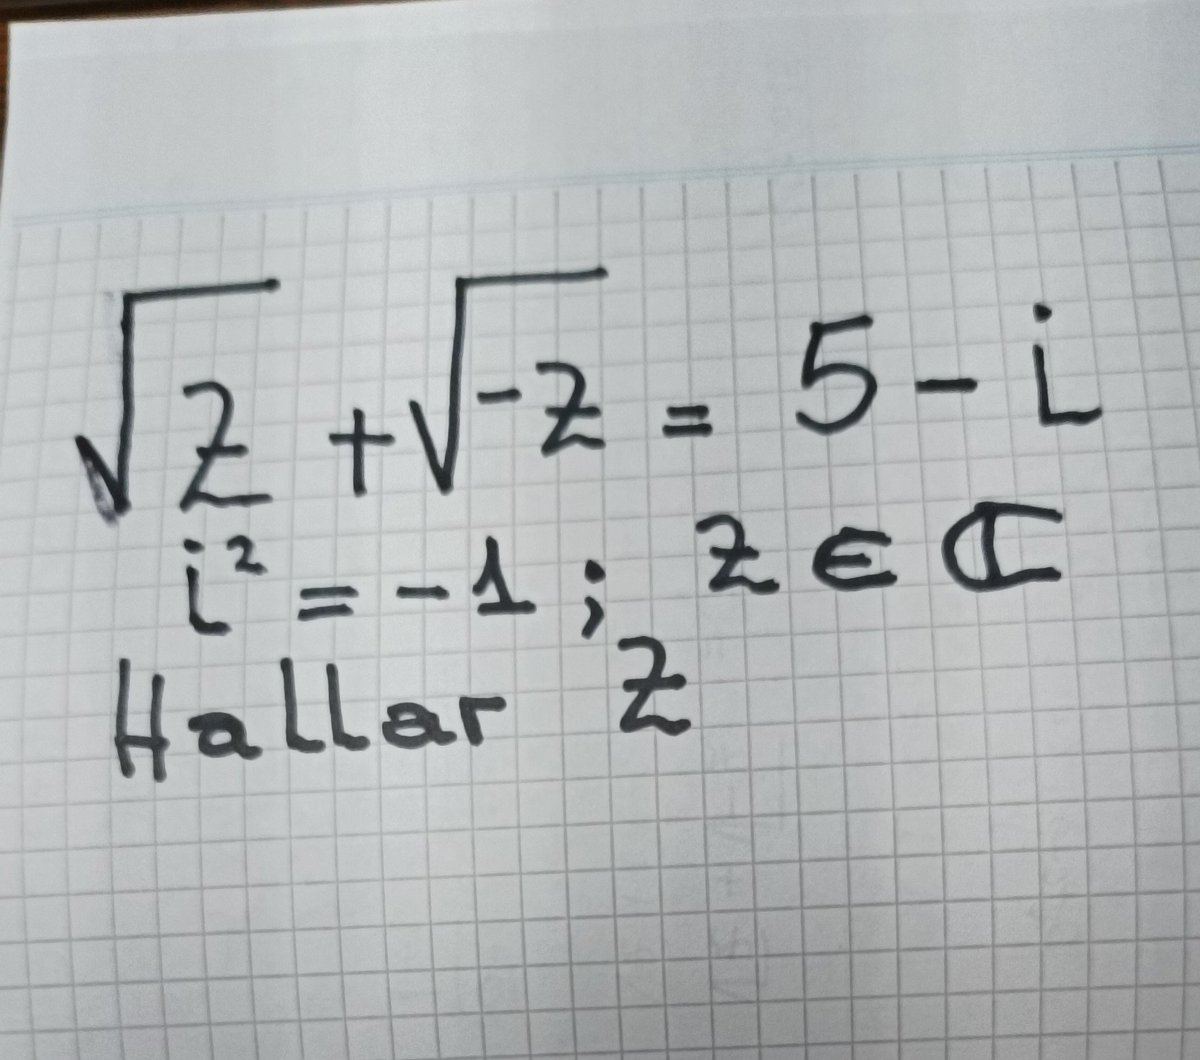 √z + √-z = 5 - i
i² = -1 ; z ∈ ℂ
Hallar z